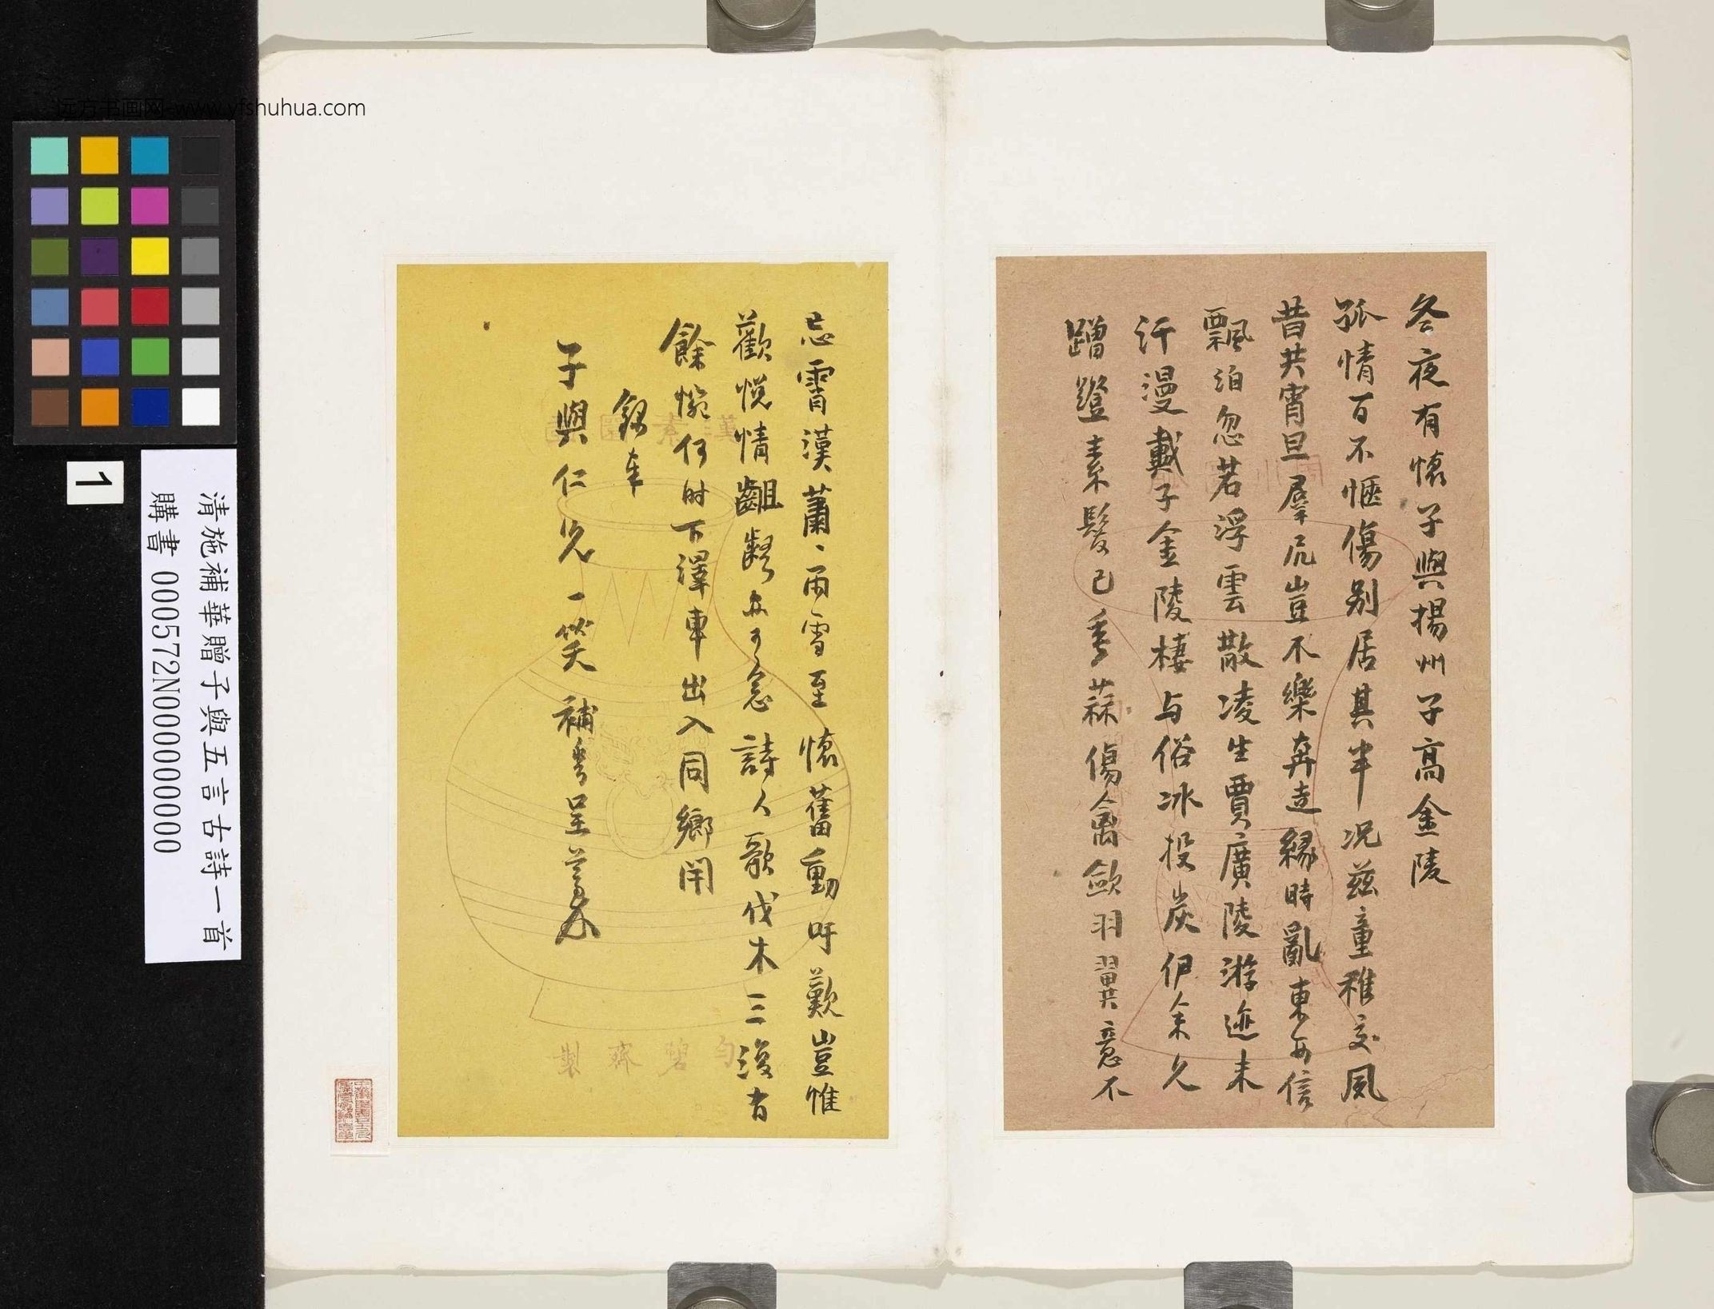 远方书画网-www.yfshuhua.com
冬夜有懷子與揚州子高金陵
孤情百不愜傷别居其半况兹童稚交夙
昔共宵旦羣尻豈不樂奔走緣時亂東西信
飄泊忽若浮雲散凌生賈廣陵游迹未
汗漫戴子金陵棲与俗冰投炭伊余久
蹭蹬素髮已垂蒜傷禽斂羽翼意不
忘霄漢蕭、雨雪至懷舊動吁歎豈惟
歡悦情齟齬亦可念詩人歌伐木三復有
餘惋何時下澤車出入同鄉閈
錄奉
子與仁兄一笑 補華呈藁
製
1
清施補華贈子與五言古詩一首
購書 000572N000000000